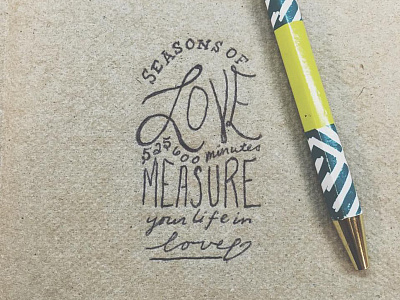 SEASONS OF
LOVE
525600 minutes
MEASURE
your life in
love